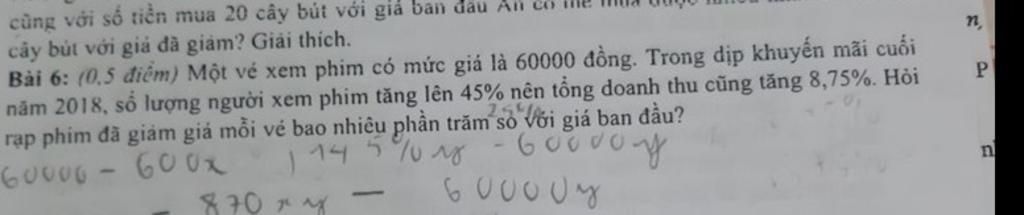 cũng với số tiền mua 20 cây bút với giá ban đầu An có thể mua được
cây bút với giá đã giảm? Giải thích.
n,
Bài 6: (0,5 điểm) Một vé xem phim có mức giá là 60000 đồng. Trong dịp khuyến mãi cuối
P
năm 2018, số lượng người xem phim tăng lên 45% nên tổng doanh thu cũng tăng 8,75%. Hỏi
rạp phim đã giảm giá mỗi vé bao nhiêu phần trăm so với giá ban đầu?
60000 - 600x 145% y - 60000y
n
870 x y - 60000y